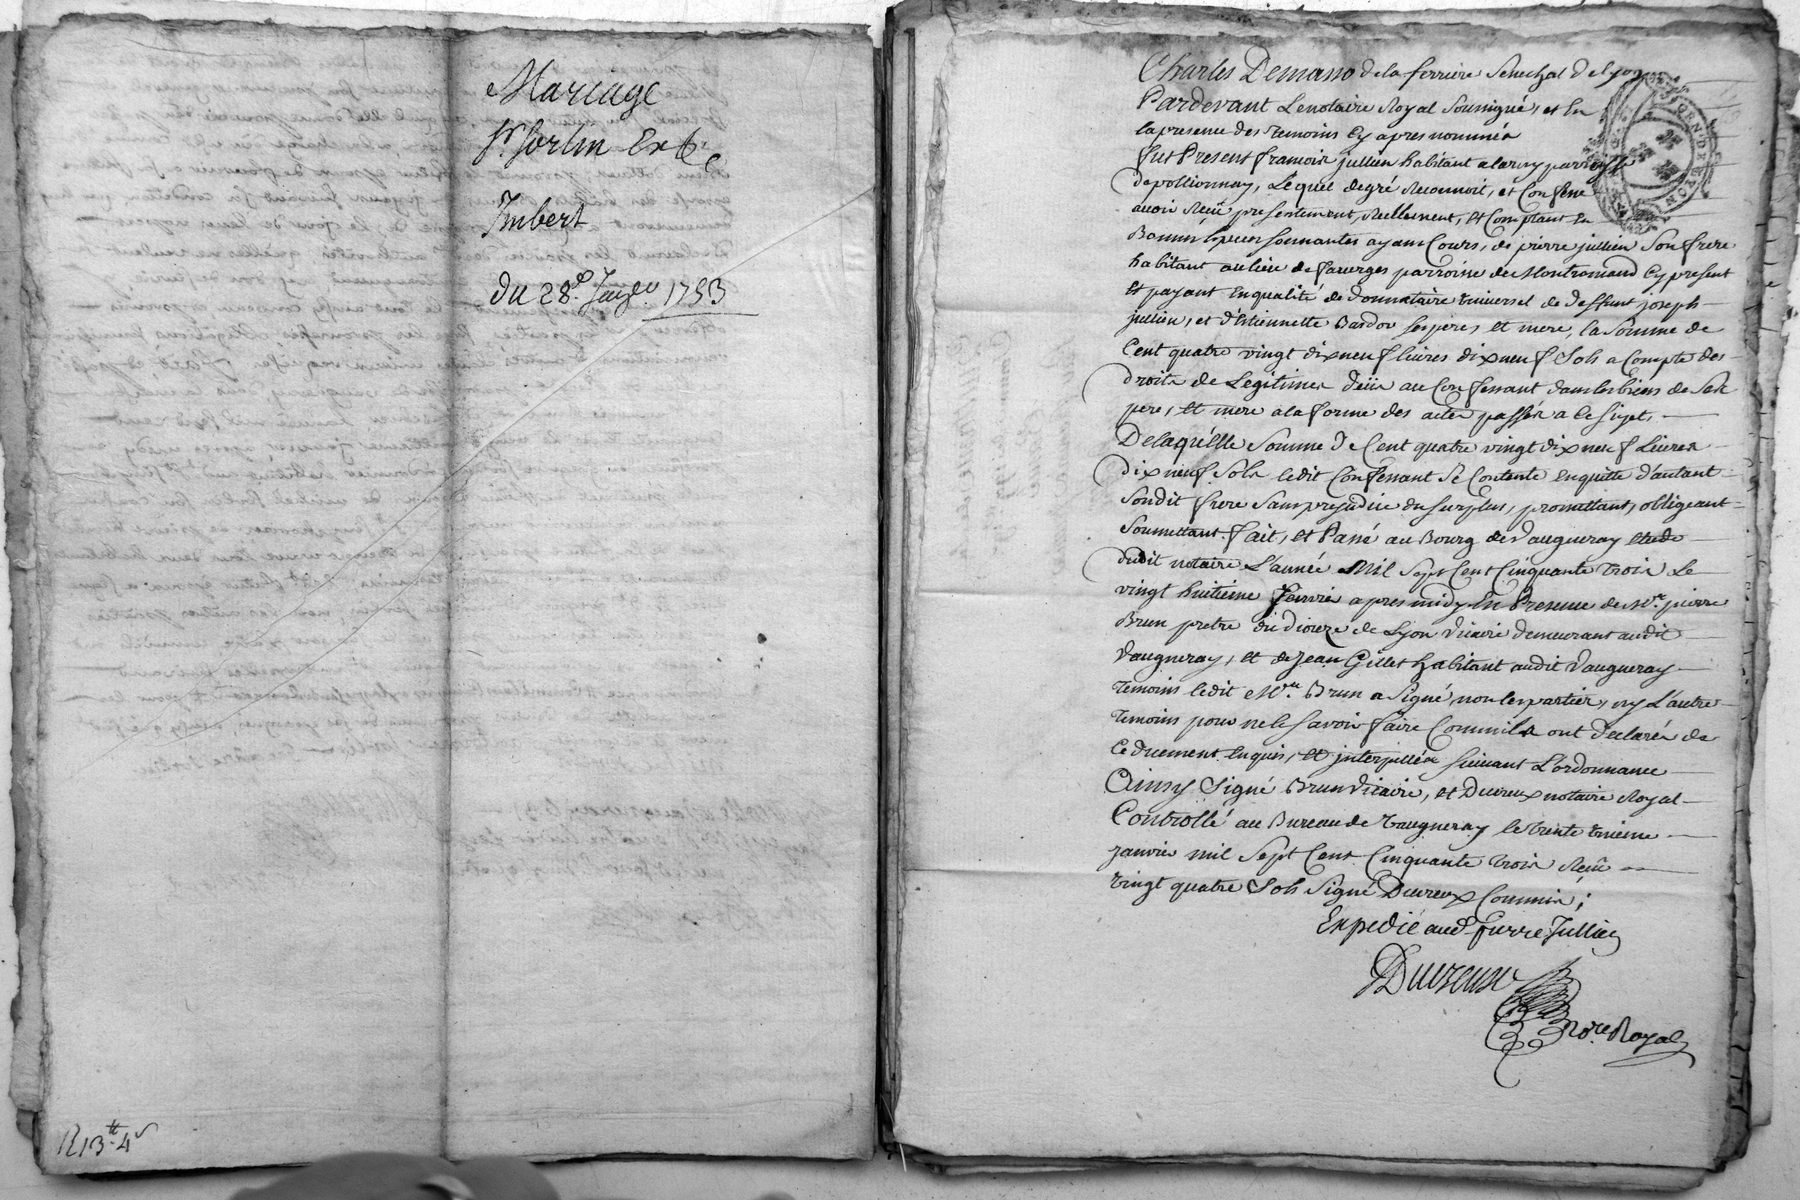 Mariage
Sr. Sorlin et
Imbert
du 28e. Janer. 1753
R 13tt 4s
Charles Demano de la ferriere Senechal de Lyon
Pardevant Le notaire Royal Soussigné, et En
la presence des temoins Cy apres nommés
fut Present francois jullien habitant a larny parroisse
de pollionnay, Lequel de gré Reconnoit, et Confesse
avoir Reçû presentement, Reellement, et Comptant En
Bonnes Especes sonnantes ayant Cours, de pierre jullien Son frere
habitant au lieu de faverges parroisse de Montromand Cy present
Et payant En qualité de donnataire universel de deffunt joseph
jullien, et d'Etiennette Bardou Ses pere, et mere, la Somme de
Cent quatre vingt dix neuf livres dix neuf Sols a Compte des
droits de Legitimes deüs au Confessant dans les biens de Ses
pere, Et mere a la forme des actes passés a Ce Sujet,
De laquelle Somme de Cent quatre vingt dix neuf Livres
dix neuf Sols ledit Confessant Se Contente En quitte d'autant
Sondit frere Sans prejudice du Surplus, promettant, obligeant
Soumettant. fait, et Passé au Bourg de Vaugneray Etude
dudit notaire L'année Mil Sept Cent Cinquante trois Le
vingt huitieme Janvier apres midy En Presence de Mre. pierre
Brun pretre du dioceze de Lyon vicaire demeurant audit
Vaugneray, et de Jean Gillet habitant audit Vaugneray
temoins ledit Mre. Brun a Signé, non les parties, ny L'autre
temoins pour ne le Savoir faire Comme ils ont declarés de
Ce duement Enquis, et interpellés Suivant L'ordonnance
Ainsy Signé Brun Vicaire, et Duvreux notaire Royal
Controllé au Bureau de Vaugneray le trente unieme
janvier mil Sept Cent Cinquante trois Reçû
vingt quatre Sols Signé Duvreux Commis;
Expedié aud. pierre Jullien
Duvreux
Nore. Royal